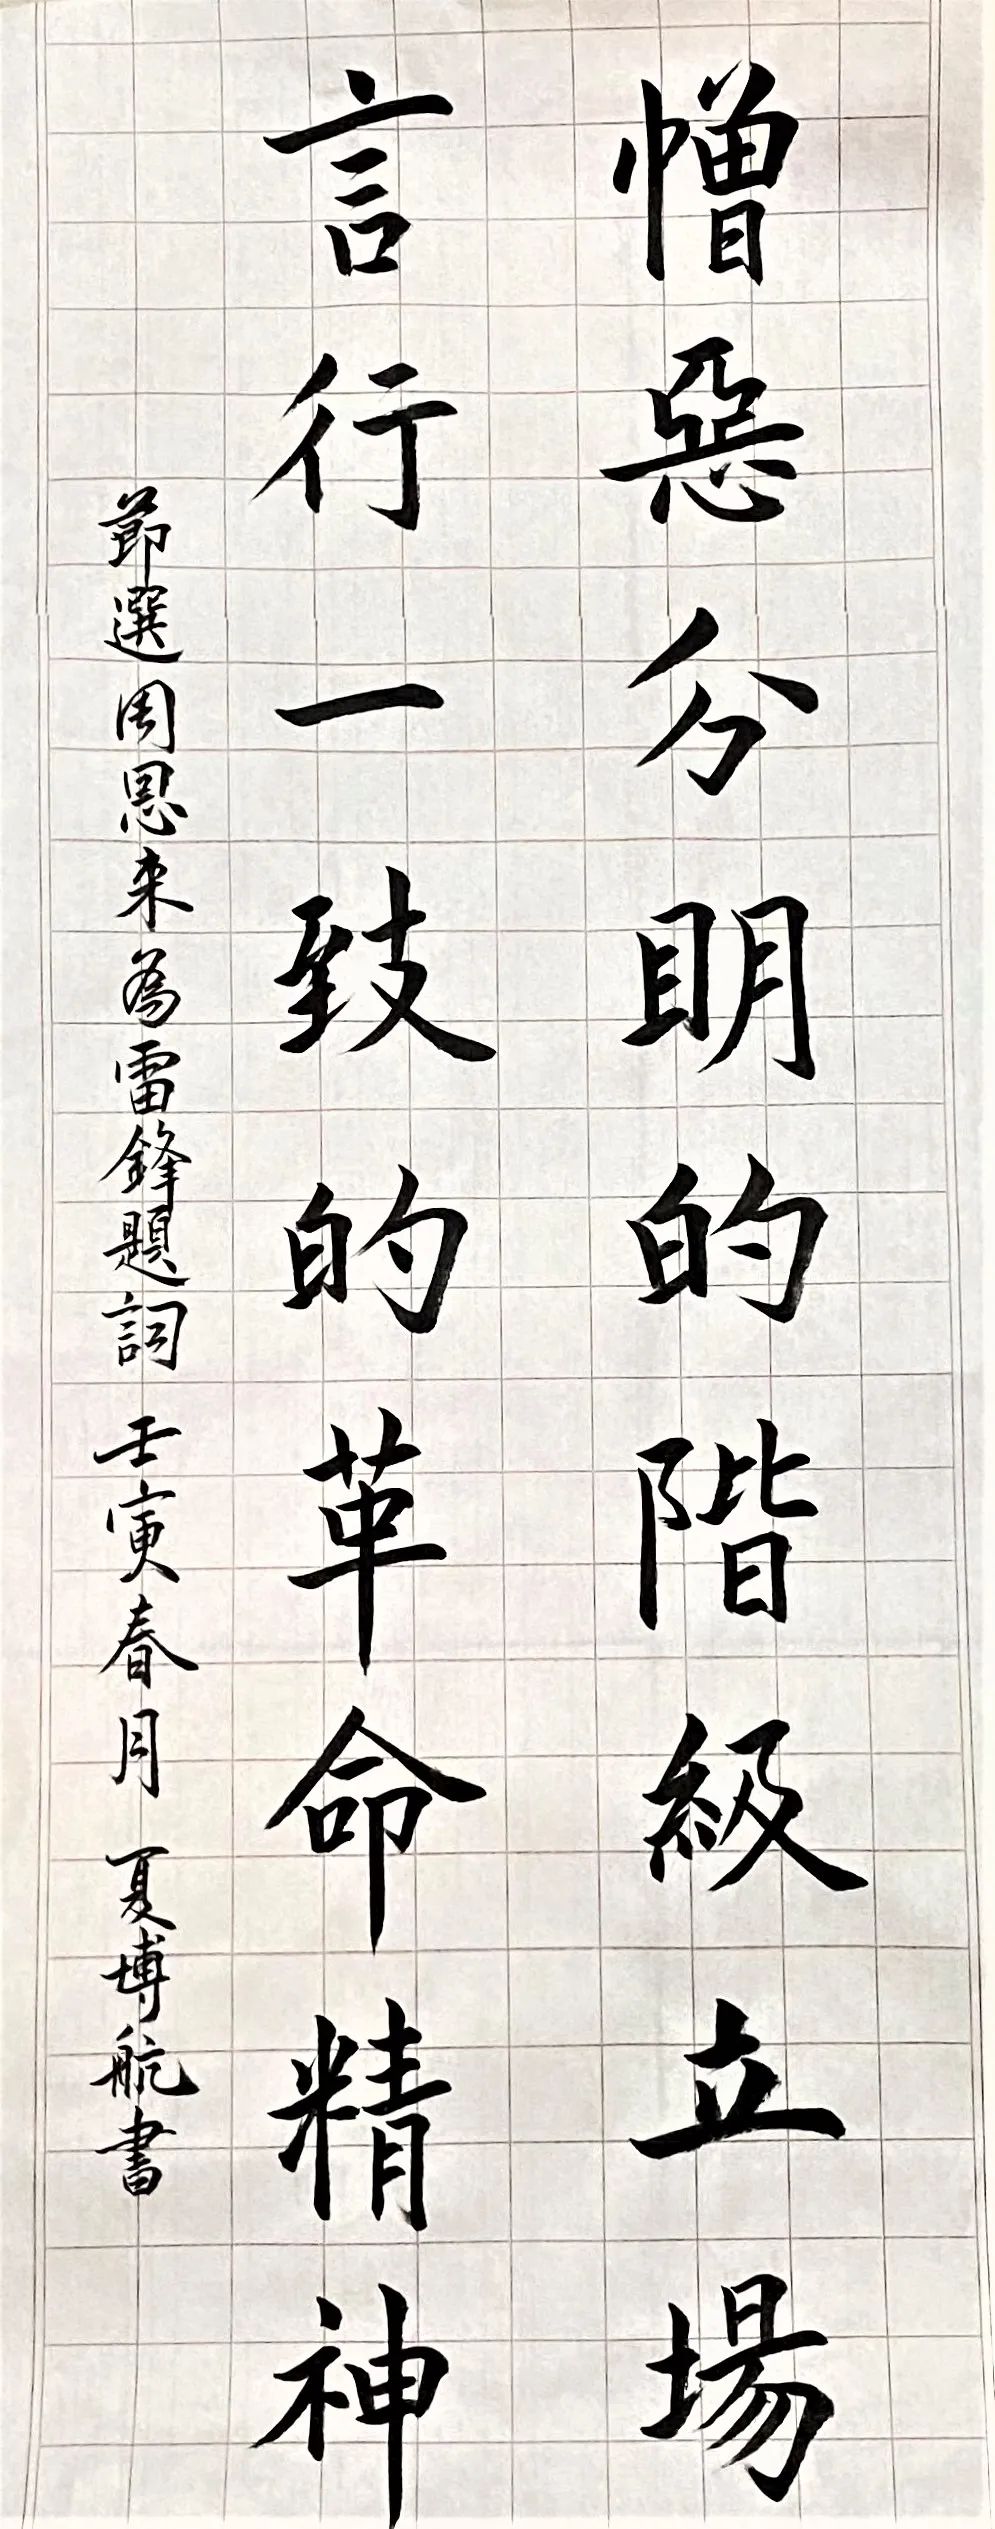 憎惡分明的階級立場
言行一致的革命精神
節選周恩来為雷鋒題詞 壬寅春月 夏博航書